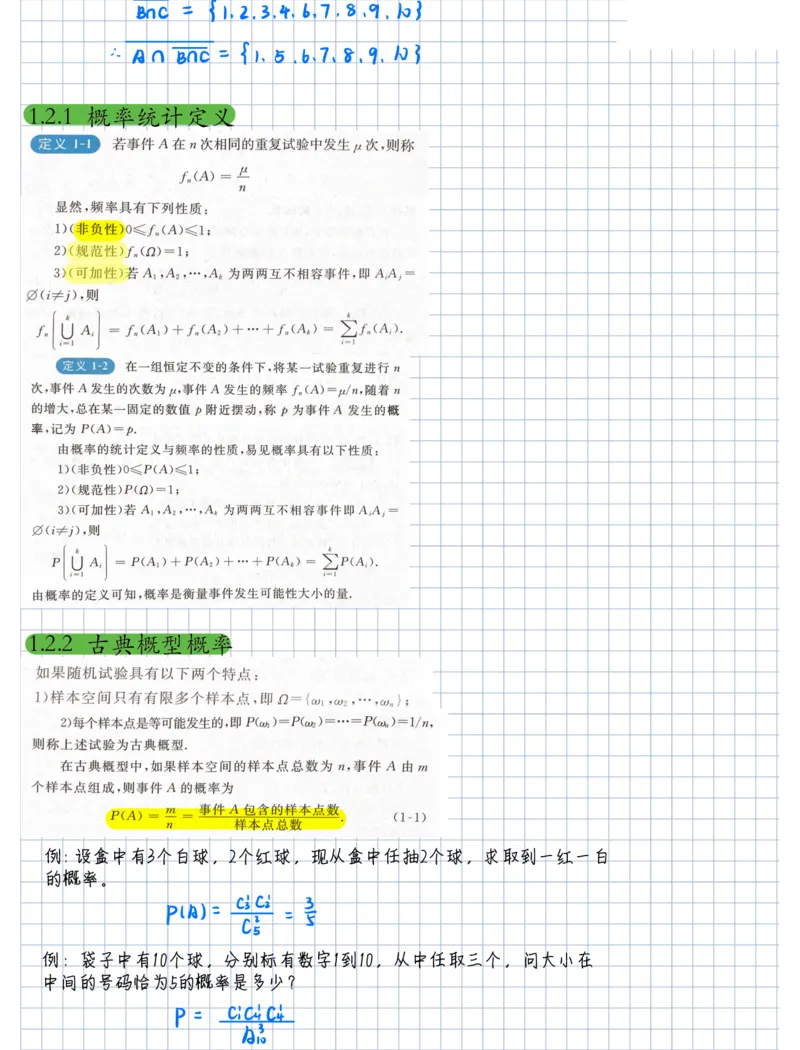 B∩C = {1.2.3.4.6.7.8.9.10}
∴ A∩B∩C = {1.5.6.7.8.9.10}
1.2.1 概率统计定义
定义 1-1 若事件 A 在 n 次相同的重复试验中发生 μ 次,则称
fₙ(A) = μ/n
显然,频率具有下列性质:
1)(非负性)0≤fₙ(A)≤1;
2)(规范性)fₙ(Ω)=1;
3)(可加性)若 A₁,A₂,⋯,Aₖ 为两两互不相容事件,即 AᵢAⱼ=
∅(i≠j),则
fₙ(⋃ᵢ₌₁ᵏ Aᵢ) = fₙ(A₁)+fₙ(A₂)+⋯+fₙ(Aₖ) = ∑ᵢ₌₁ᵏ fₙ(Aᵢ).
定义 1-2 在一组恒定不变的条件下,将某一试验重复进行 n
次,事件 A 发生的次数为 μ,事件 A 发生的频率 fₙ(A)=μ/n,随着 n
的增大,总在某一固定的数值 p 附近摆动,称 p 为事件 A 发生的概
率,记为 P(A)=p.
由概率的统计定义与频率的性质,易见概率具有以下性质:
1)(非负性)0≤P(A)≤1;
2)(规范性)P(Ω)=1;
3)(可加性)若 A₁,A₂,⋯,Aₖ 为两两互不相容事件即 AᵢAⱼ=
∅(i≠j),则
P(⋃ᵢ₌₁ᵏ Aᵢ) = P(A₁)+P(A₂)+⋯+P(Aₖ) = ∑ᵢ₌₁ᵏ P(Aᵢ).
由概率的定义可知,概率是衡量事件发生可能性大小的量.
1.2.2 古典概型概率
如果随机试验具有以下两个特点:
1)样本空间只有有限多个样本点,即 Ω={ω₁,ω₂,⋯,ωₙ};
2)每个样本点是等可能发生的,即 P(ω₁)=P(ω₂)=⋯=P(ωₙ)=1/n,
则称上述试验为古典概型.
在古典概型中,如果样本空间的样本点总数为 n,事件 A 由 m
个样本点组成,则事件 A 的概率为
P(A) = m/n = 事件 A 包含的样本点数/样本点总数. (1-1)
例: 设盒中有3个白球，2个红球，现从盒中任抽2个球，求取到一红一白
的概率。
P(A) = C₃¹C₂¹/C₅² = 3/5
例：袋子中有10个球，分别标有数字1到10，从中任取三个，问大小在
中间的号码恰为5的概率是多少?
P = C₁¹C₄¹C₄¹/A₁₀³